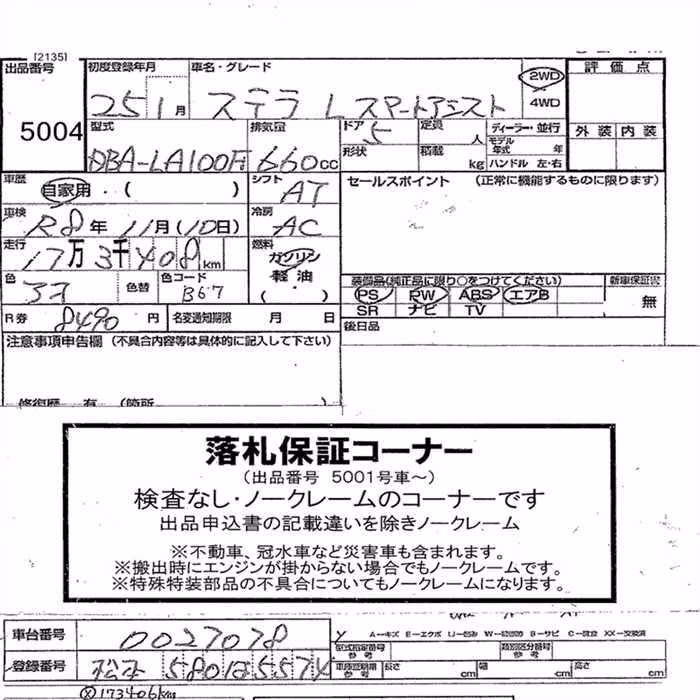 [2135]
出品番号 初度登録年月 車名・グレード 2WD 評価点
5004 25 1月 ステラ L スマートアシスト 4WD
型式 排気量 ドア 5 定員 人 ディーラー・並行 外装 内装
DBA-LA100F 660cc 形状 積載 kg モデル年式 年 ハンドル 左・右
車歴 自家用・( ) シフト AT セールスポイント (正常に機能するものに限ります)
車検 R8年 11月(10日) 冷房 AC
走行 17万3千408km 燃料 ガソリン 軽油 ・( )
色 色替 色コード B67 装備品(純正品に限り○をつけてください) 新車保証書
PS PW ABS エアB 無
SR ナビ TV
R券 8490円 名変通知期限 月 日 後日品
注意事項申告欄 (不具合内容等は具体的に記入して下さい)
修復歴 有 (箇所
落札保証コーナー
(出品番号 5001号車~)
検査なし・ノークレームのコーナーです
出品申込書の記載違いを除きノークレーム
※不動車、冠水車など災害車も含まれます。
※搬出時にエンジンが掛からない場合でもノークレームです。
※特殊特装部品の不具合についてもノークレームになります。
車台番号 0027078 A-キズ E-エクボ U-凹み B-サビ C-腐食 XX-交換済
型式指定番号 類別区分番号
登録番号 松本 580 5574 長さ cm 幅 cm 高さ cm
173406km